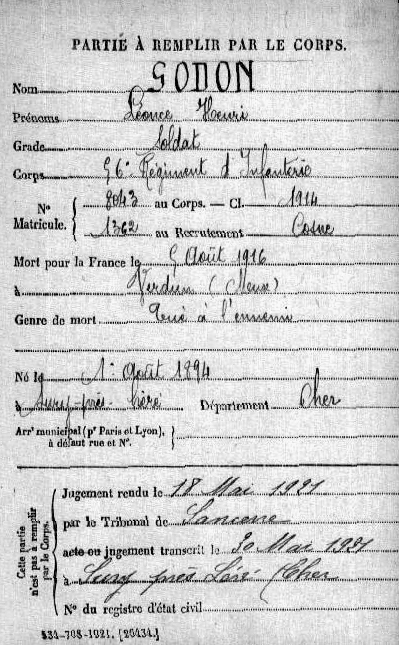 PARTIE À REMPLIR PAR LE CORPS.
Nom GODON
Prénoms Léonce Henri
Grade Soldat
Corps 56e Régiment d'Infanterie
N° Matricule. 8043 au Corps. — Cl. 1914
1362 au Recrutement Cosne
Mort pour la France le 5 Août 1916
à Verdun (Meuse)
Genre de mort Tué à l'ennemi
Né le 1er Août 1894
à Sury-près-Léré Département Cher
Arr' municipal (p' Paris et Lyon),
à défaut rue et N°.
Cette partie
n'est pas à remplir
par le Corps.
Jugement rendu le 18 Mai 1921
par le Tribunal de Sancerre
acte ou jugement transcrit le 30 Mai 1921
à Sury près Léré (Cher
N° du registre d'état civil
534-708-1921. [26434.]